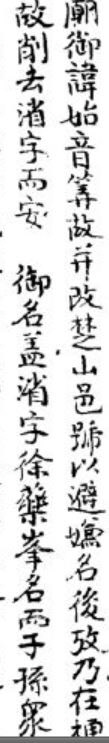 廟御諱始音箕故并改楚山邑號以避嫌名後攷乃在
故削去消字而安　御名盖消字徐藥峯名而子孫衆